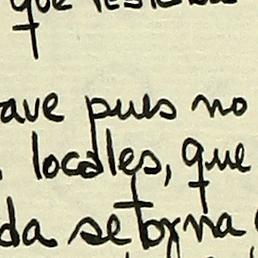 que
ave pues no
locales, que
da se torna